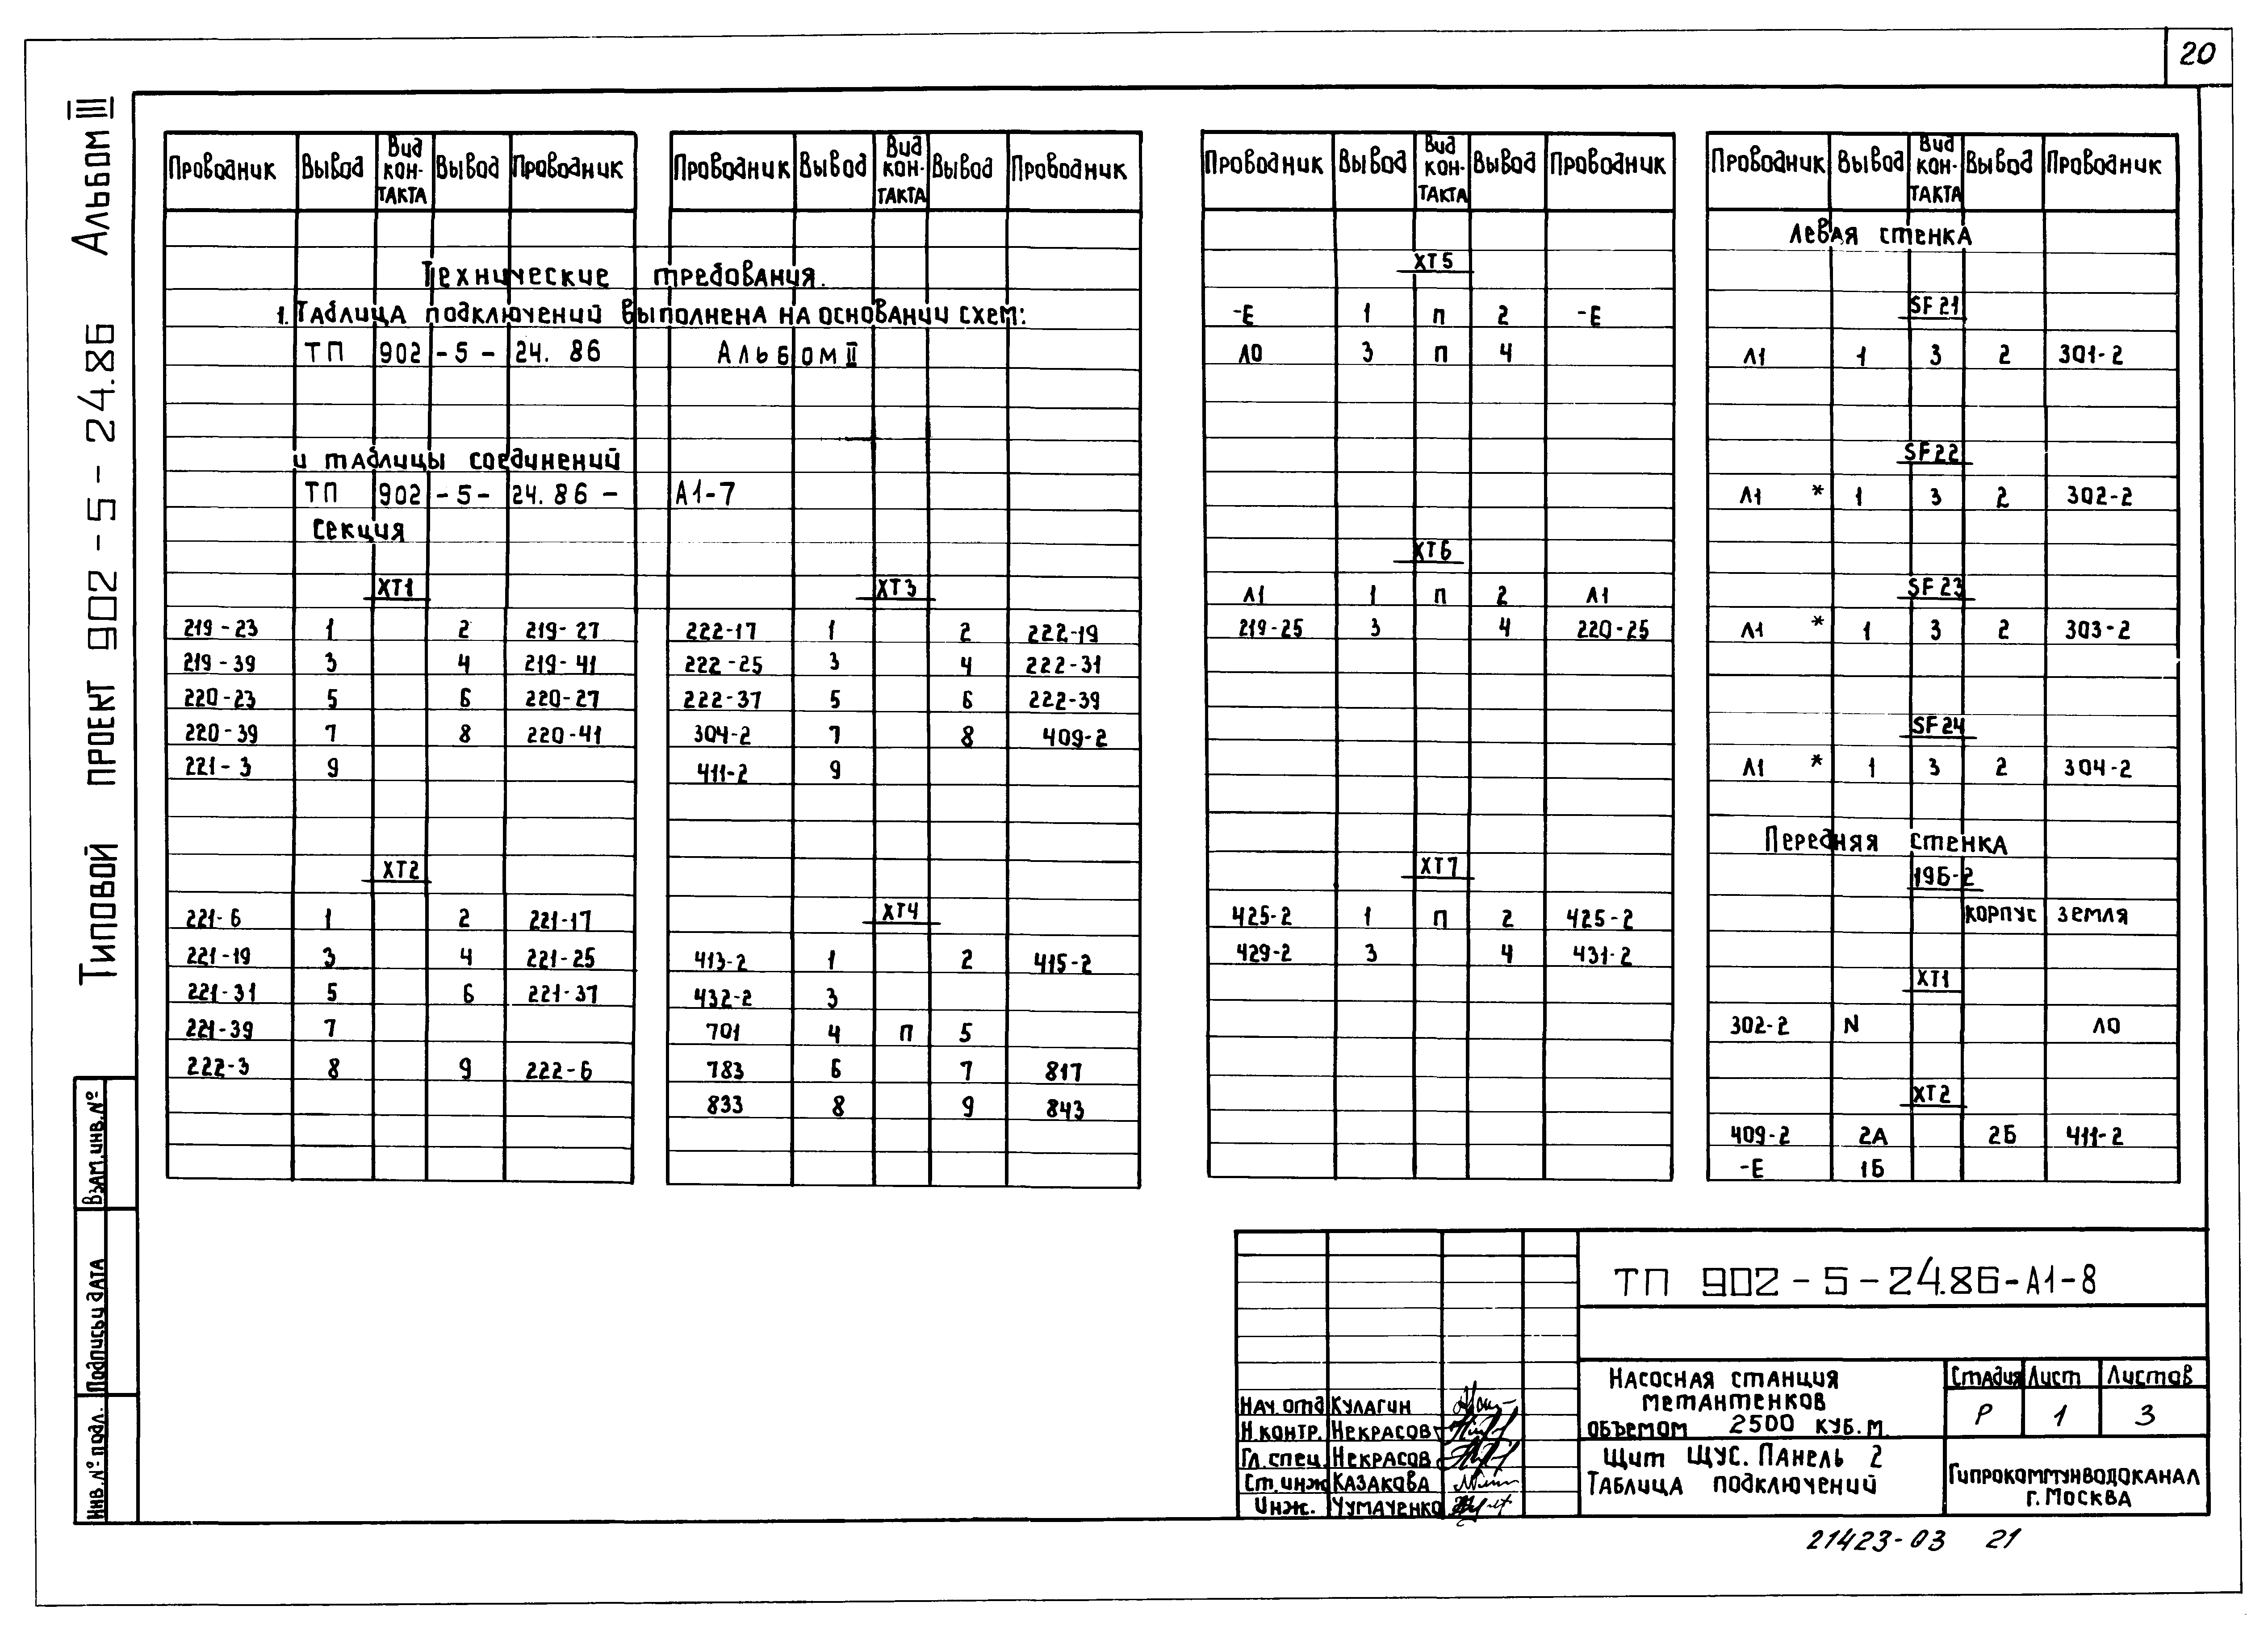 20
Типовой проект 902-5-24.86 Альбом III
Проводник Вывод Вид контакта Вывод Проводник
Технические требования.
1. Таблица подключений выполнена на основании схем:
ТП 902-5-24.86 Альбом II
и таблицы соединений
ТП 902-5-24.86- А1-7
секция
ХТ1
219-23 1 2 219-27
219-39 3 4 219-41
220-23 5 6 220-27
220-39 7 8 220-41
221-3 9
ХТ2
221-6 1 2 221-17
221-19 3 4 221-25
221-31 5 6 221-37
221-39 7
222-3 8 9 222-6
Проводник Вывод Вид кон-такта Вывод Проводник
ХТ3
222-17 1 2 222-19
222-25 3 4 222-31
222-37 5 6 222-39
304-2 7 8 409-2
411-2 9
ХТ4
413-2 1 2 415-2
432-2 3
701 4 п 5
783 6 7 817
833 8 9 843
Проводник Вывод Вид кон-такта Вывод Проводник
ХТ5
-Е 1 п 2 -Е
Л0 3 п 4
ХТ6
Л1 1 п 2 Л1
219-25 3 4 220-25
ХТ7
425-2 1 п 2 425-2
429-2 3 4 431-2
Проводник Вывод Вид кон-такта Вывод Проводник
Левая стенка
SF21
Л1 1 3 2 301-2
SF22
Л1 * 1 3 2 302-2
SF23
Л1 * 1 3 2 303-2
SF24
Л1 * 1 3 2 304-2
Передняя стенка
19Б-2
корпус земля
ХТ1
302-2 N Л0
ХТ2
409-2 2А 2Б 411-2
-Е 1Б
Взам.инв.№
Подпись и дата
Инв.№ подл.
ТП 902-5-24.86-А1-8
Насосная станция
метантенков
объемом 2500 куб.м.
Стадия Лист Листов
Р 1 3
Щит ЩУС. Панель 2
Таблица подключений
Гипрокоммунводоканал
г. Москва
Нач.отд Кулагин
Н.контр. Некрасов
Гл.спец. Некрасов
Ст.инж Казакова
Инж. Чумаченко
21423-03 21